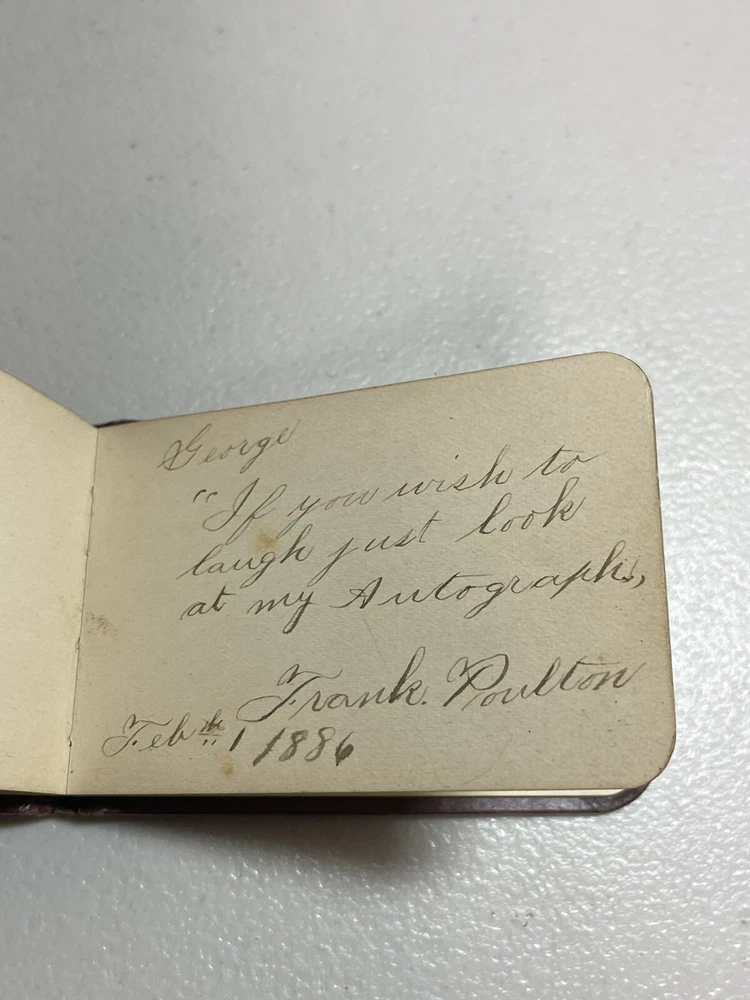 George
"If you wish to
laugh just look
at my Autograph.,
Frank. Poulton
Feb th 1 1886